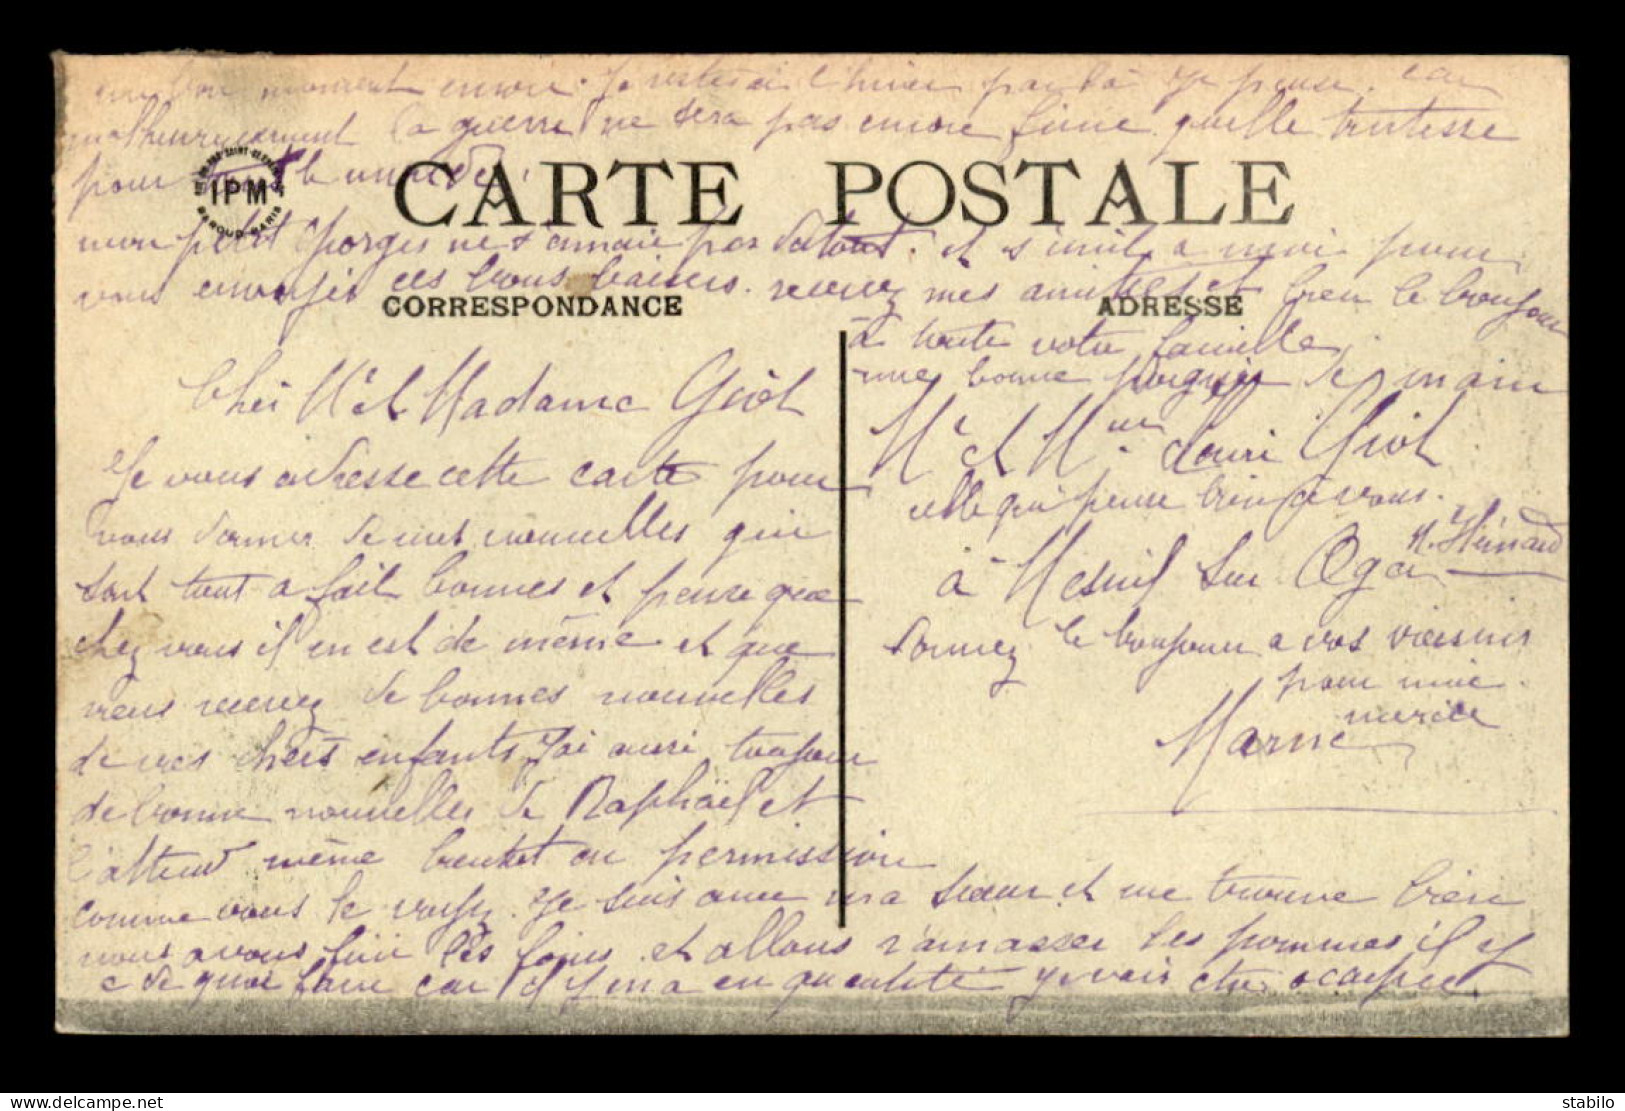 un bon moment encore. Je resterai l'hiver par là je pense. car
malheureusement la guerre ne sera pas encore finie quelle tristesse
pour tout le monde.
IPM
CARTE POSTALE
mon petit Georges ne s'ennuie pas du tout. et s'unit a moi pour
vous envoyer ces bons baisers. recevez mes amitiés et bien le bonjour
CORRESPONDANCE
ADRESSE
à toute votre famille
une bonne poignée de main
Cher Mr et Madame Griot
Je vous adresse cette carte pour
vous donner de mes nouvelles qui
sont tout a fait bonnes et pense que
chez vous il en est de même et que
vous recevez de bonnes nouvelles
de vos chers enfants J'ai aussi toujours
de bonne nouvelles de Raphaël et
l'attend même bientot en permission
comme vous le voyez Je suis avec ma sœur et me trouve bien
nous avons fini les foins et allons ramasser les pommes il y
a de quoi faire car il y en a en quantité je vais etre occupée
Mr et Mme Griot
celle qui pense bien à vous.
à Mesnil sur Oger
donnez le bonjour a vos voisins
pour moi.
merci
Marne
stabilo